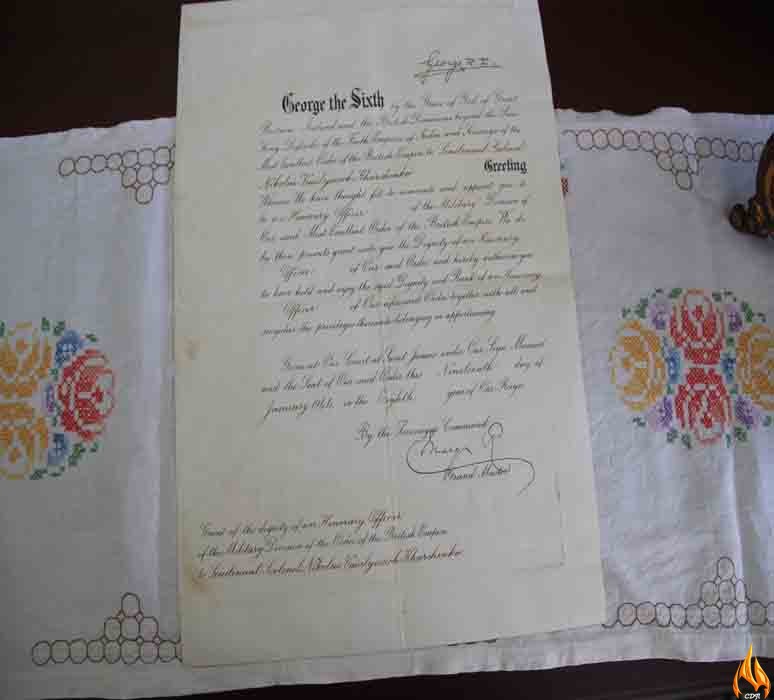 George R. I.
George the Sixth by the Grace of God, of Great
Britain, Ireland and the British Dominions beyond the Seas
King, Defender of the Faith, Emperor of India and Sovereign of the
Most Excellent Order of the British Empire to Lieutenant Colonel
Nikolai Vasilyevich Kharchenko Greeting
Whereas We have thought fit to nominate and appoint you to
be an Honorary Officer of the Military Division of
Our said Most Excellent Order of the British Empire We do
by these presents grant unto you the Dignity of an Honorary
Officer of Our said Order and hereby authorise you
to have hold and enjoy the said Dignity and Rank of an Honorary
Officer of Our aforesaid Order together with all and
singular the privileges thereunto belonging or appertaining.
Given at Our Court at Saint James's under Our Sign Manual
and the Seal of Our said Order this Nineteenth day of
January 1944, in the Eighth year of Our Reign.
By the Sovereign's Command.
Grand Master
Grant of the dignity of an Honorary Officer
of the Military Division of the Order of the British Empire
to Lieutenant Colonel Nikolai Vasilyevich Kharchenko
CDR